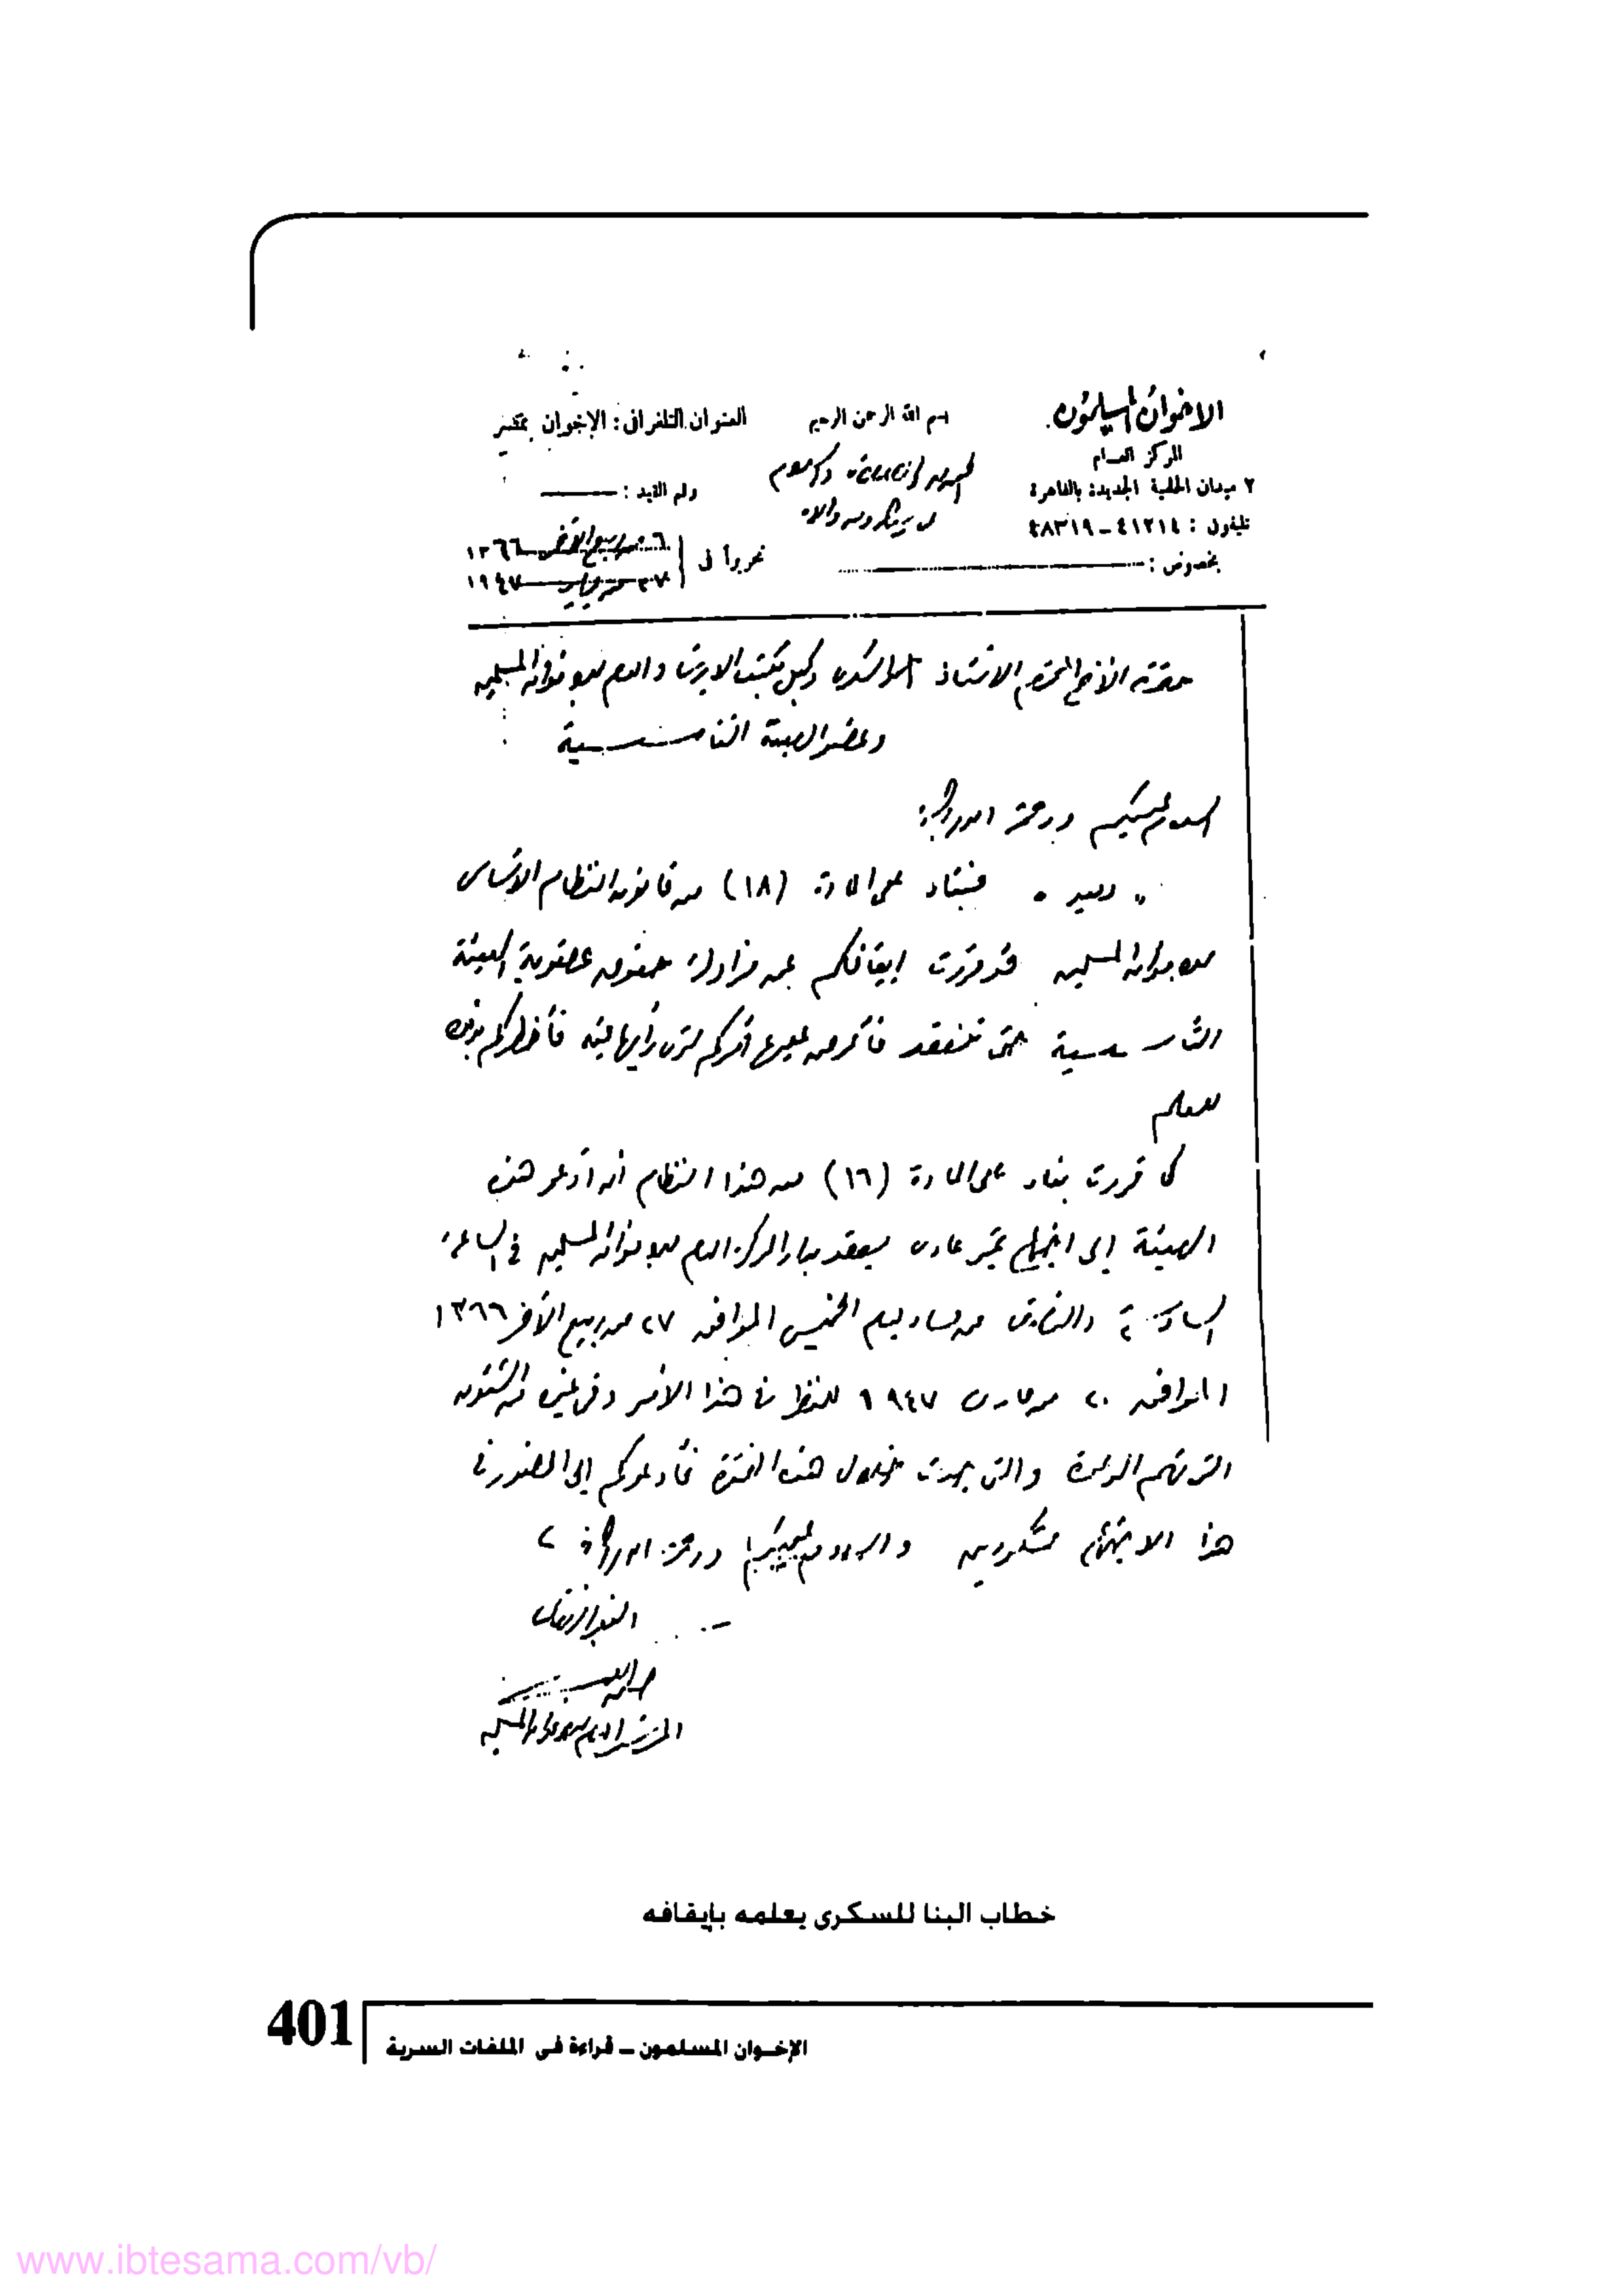 الإخوان المسلمون
المركز العام
٢ ميدان الحلمية الجديدة بالقاهرة
تليفون : ٤١٢١٤ - ٤٨٣١٩
بخصوص :
بسم الله الرحمن الرحيم
العنوان التلغرافى : الإخوان بمصر
رقم القيد :
تحريراً فى
ربيع الآخر ١٣٦٦
١٩٤٧
حضرة الأخ المحترم الأستاذ أحمد السكرى وكيل مكتب الإرشاد العام للإخوان المسلمين
وعضو الهيئة التأسيسية
السلام عليكم ورحمة الله وبركاته
وبعد . فبناء على المادة (١٨) من قانون النظام الأساسى
للإخوان المسلمين قد قررت إيقافكم عن مزاولة حقوق عضوية الهيئة
التأسيسية حتى تنعقد فأعرض عليها أمركم لترى رأيها فيه فأخطركم بذلك
للعلم
كما قررت بناء على المادة (١٦) من هذا النظام أن أدعو هذه
الهيئة إلى اجتماع غير عادى سيعقد بدار المركز العام للإخوان المسلمين فى الساعة
السادسة والنصف من مساء يوم الخميس الموافق ٢٧ من ربيع الآخر ١٣٦٦
الموافق ٢٠ من مارس ١٩٤٧ للنظر فى هذا الأمر وفى غيره من الشئون
التى تهم الدعوة والتى جدت خلال هذه الفترة فأدعوكم إلى الحضور فى
هذا الاجتماع مشكورين والسلام عليكم ورحمة الله وبركاته
حسن البنا
المرشد العام للإخوان المسلمين
خطاب البنا للسكرى يعلمه بإيقافه
401
الإخوان المسلمون – قراءة فى الملفات السرية
www.ibtesama.com/vb/